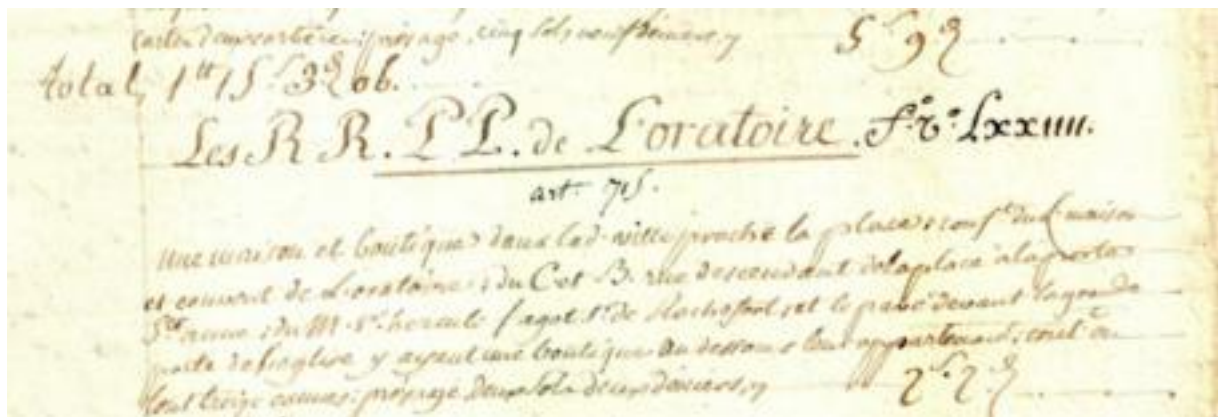 cinq sols neuf deniers, y 5 s. 9 d.
total, 1 tt 15 s. 3 d. ob.
Les R R. P P. de L'oratoire. f.° r.° Lxxiiii.
art. 715.
une maison et boutique dans lad. ville proche la place; conf. du maison
et couvent de L'oratoire; du C et B. rue descendant de la place à la porte
Ste anne; du M. Sr. hercule fagot Sr. de Rochefort, et le pavé devant la grande
porte de l'eglise y ayant une boutique au dessous leur appartenant; cont. en
tout treize cannes; presage deux sols deux deniers, y 2 s. 2 d.